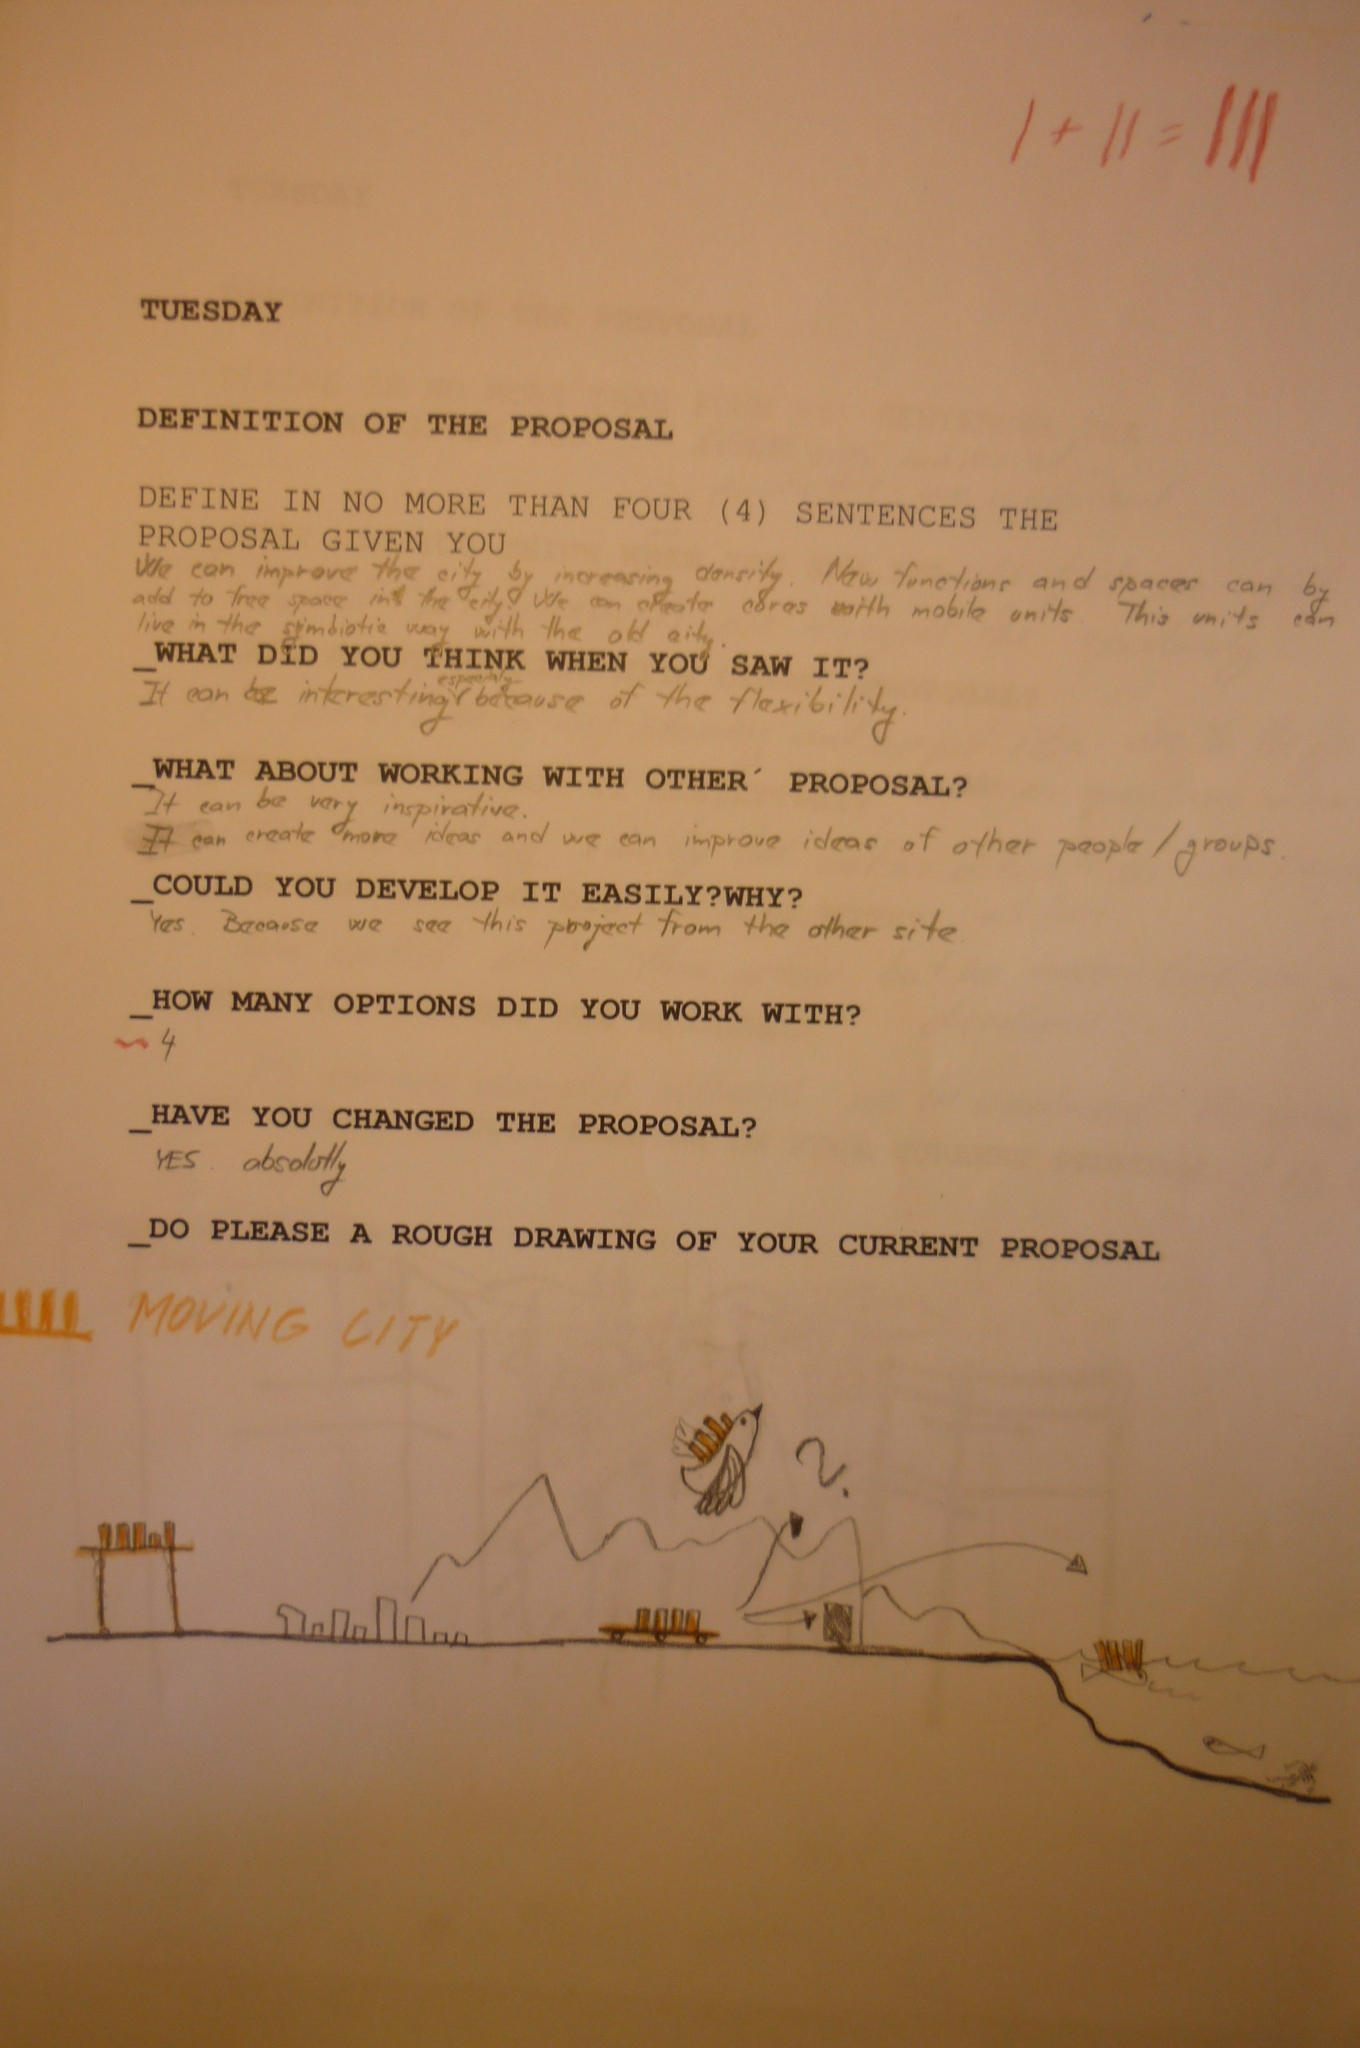 I + II = III
TUESDAY
DEFINITION OF THE PROPOSAL
DEFINE IN NO MORE THAN FOUR (4) SENTENCES THE
PROPOSAL GIVEN YOU
We can improve the city by increasing density. New functions and spaces can by
add to free space in the city. We can create cores with mobile units. This units can
live in the symbiotic way with the old city.
_WHAT DID YOU THINK WHEN YOU SAW IT?
It can be interesting especialy because of the flexibility.
_WHAT ABOUT WORKING WITH OTHER´ PROPOSAL?
It can be very inspirative.
It can create more ideas and we can improve ideas of other people / groups.
_COULD YOU DEVELOP IT EASILY?WHY?
Yes. Because we see this project from the other site.
_HOW MANY OPTIONS DID YOU WORK WITH?
~ 4
_HAVE YOU CHANGED THE PROPOSAL?
YES. absolutly
_DO PLEASE A ROUGH DRAWING OF YOUR CURRENT PROPOSAL
MOVING CITY
?